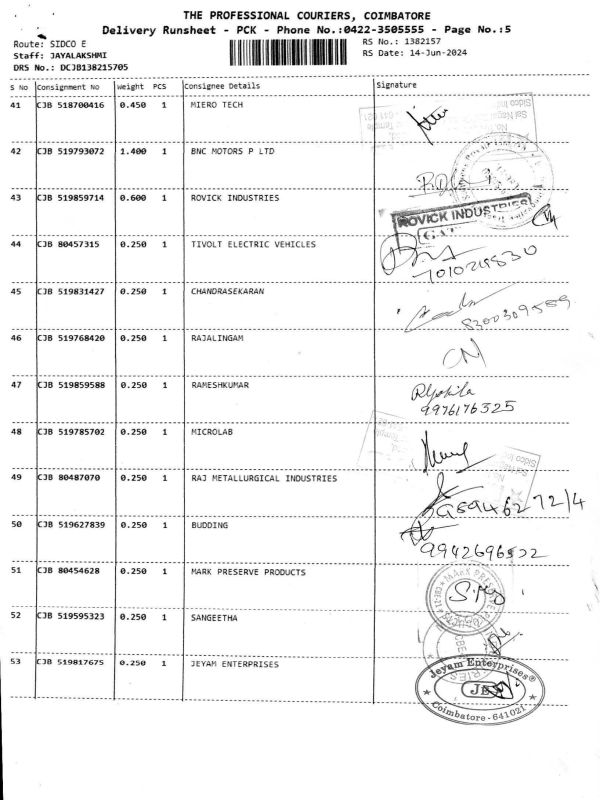 THE PROFESSIONAL COURIERS, COIMBATORE
Delivery Runsheet - PCK - Phone No.:0422-3505555 - Page No.:5
Route: SIDCO E
RS No.: 1382157
Staff: JAYALAKSHMI
RS Date: 14-Jun-2024
DRS No.: DCJB138215705
S No Consignment No Weight PCS Consignee Details Signature
41 CJB 518700416 0.450 1 MIERO TECH
42 CJB 519793072 1.400 1 BNC MOTORS P LTD
43 CJB 519859714 0.600 1 ROVICK INDUSTRIES
ROVICK INDUSTRIES
44 CJB 80457315 0.250 1 TIVOLT ELECTRIC VEHICLES
45 CJB 519831427 0.250 1 CHANDRASEKARAN
46 CJB 519768420 0.250 1 RAJALINGAM
47 CJB 519859588 0.250 1 RAMESHKUMAR
9976176325
48 CJB 519785702 0.250 1 MICROLAB
49 CJB 80487070 0.250 1 RAJ METALLURGICAL INDUSTRIES
50 CJB 519627839 0.250 1 BUDDING
51 CJB 80454628 0.250 1 MARK PRESERVE PRODUCTS
52 CJB 519595323 0.250 1 SANGEETHA
53 CJB 519817675 0.250 1 JEYAM ENTERPRISES
Jeyam Enterprises®
Coimbatore - 641021